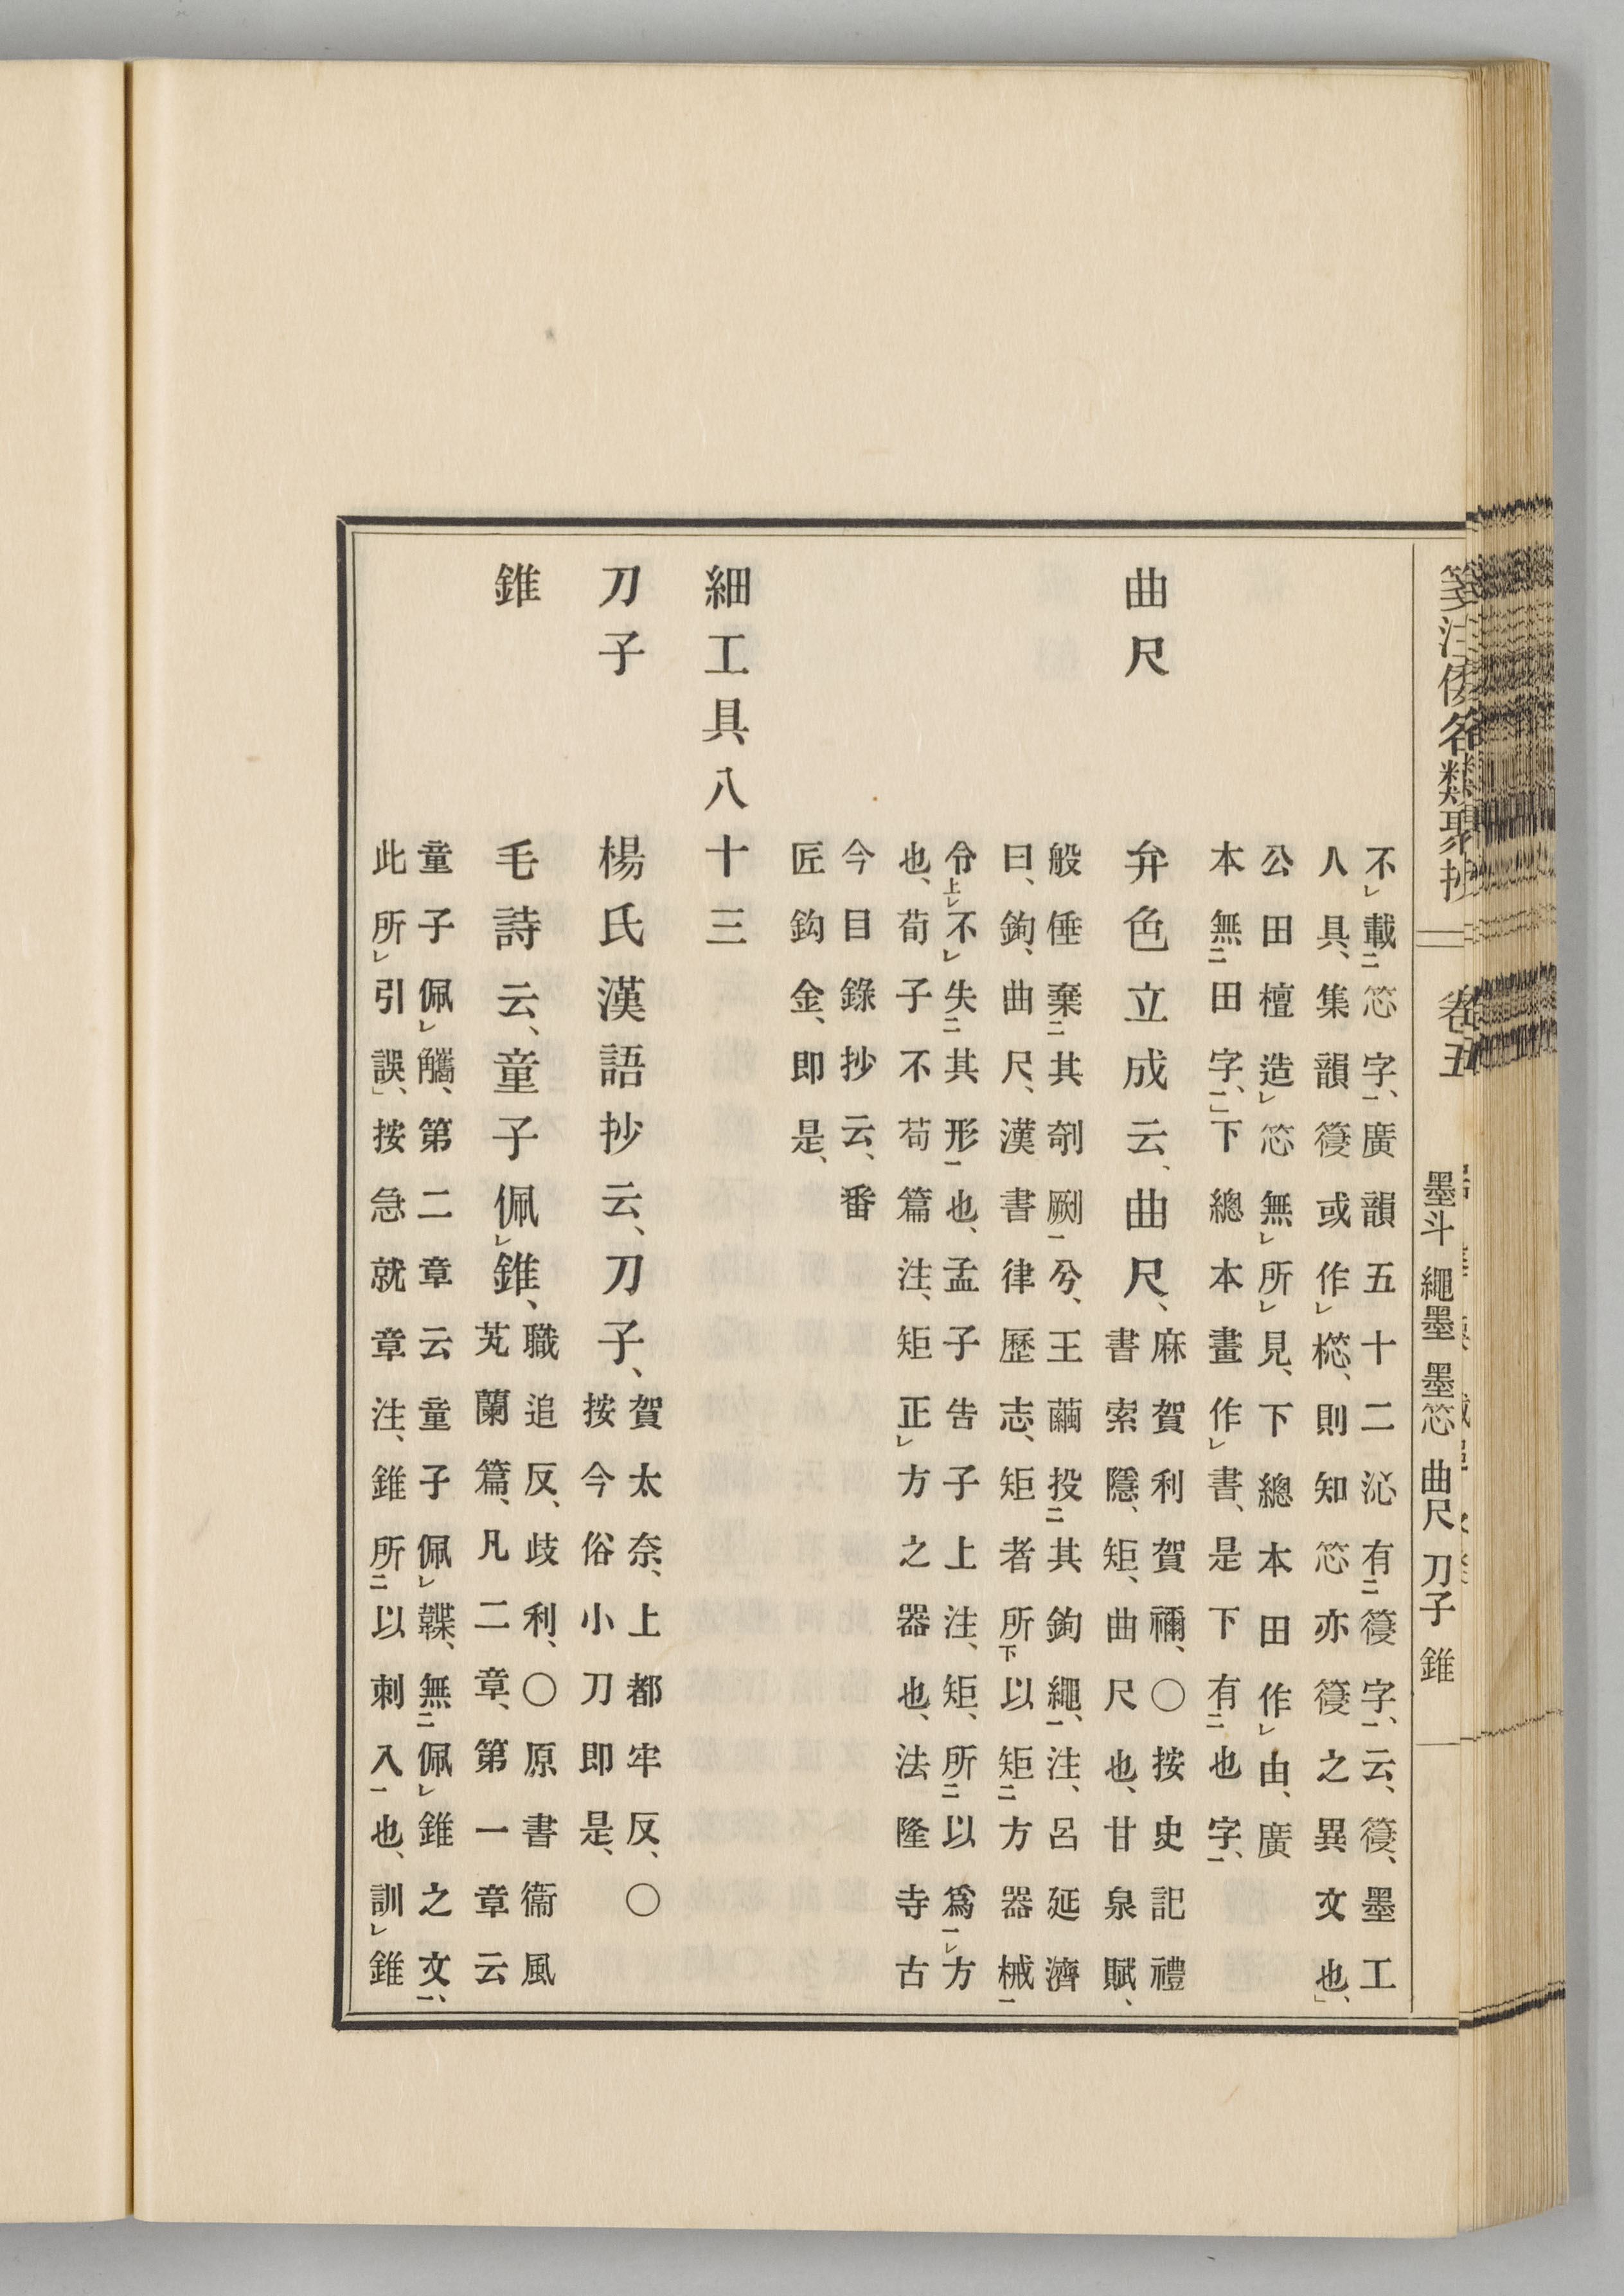 箋注倭名類聚抄 卷五 墨斗 繩墨 墨 曲尺 刀子 錐
不載字、廣韻五十二沁有字、云、墨工
人具、集韻或作則知亦之異文也、」
公田檀造無所見、下總本田作由、廣
本無田字、」下總本畫作書、是下有也字、
曲尺 弁色立成云、曲尺、
麻賀利賀禰、〇按史記禮
書索隱、矩、曲尺也、甘泉賦、
般倕棄其剞劂兮、王繭投其鉤繩、注、呂延濟
曰、鉤、曲尺、漢書律歷志、矩者所以矩方器械
令不失其形也、孟子告子上注、矩、所以爲方
也、荀子不苟篇注、矩正方之器也、法隆寺古
今目錄抄云、番
匠鈎金、即是、
細工具八十三
刀子 楊氏漢語抄云、刀子、
賀太奈、上都牢反、〇
按今俗小刀即是、
錐 毛詩云、童子佩錐、
職追反、歧利、〇原書衞風
芄蘭篇、凡二章、第一章云
童子佩觿、第二章云童子佩韘、無佩錐之文、
此所引誤、」按急就章注、錐所以刺入也、訓錐